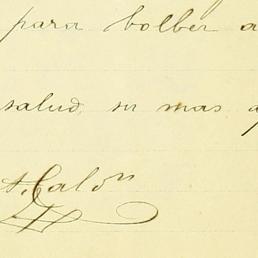 para bolber a
salud, su mas a
A. Calón